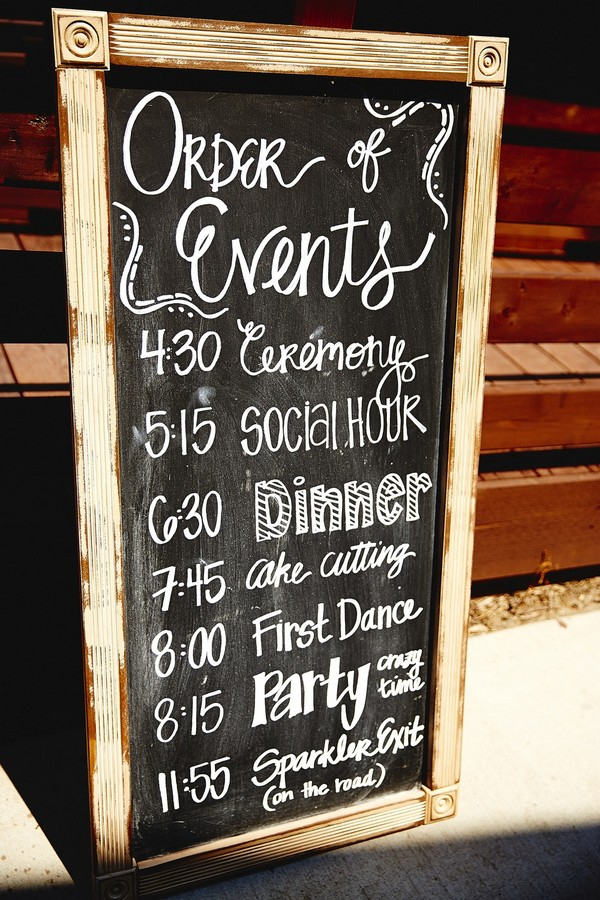 ORDER of
Events
4:30 Ceremony
5:15 SOCIAL HOUR
6:30 Dinner
7:45 cake cutting
8:00 First Dance
8:15 Party crazy time
11:55 Sparkler Exit
(on the road)